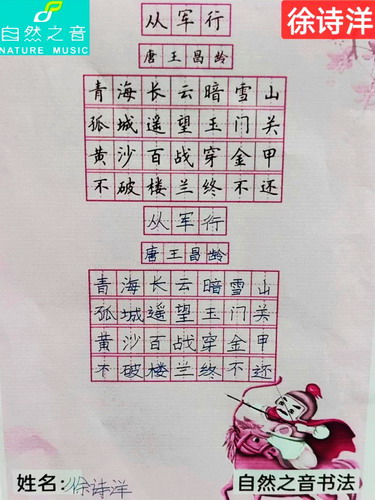 自然之音
NATURE MUSIC
徐诗洋
从军行
唐王昌龄
青海长云暗雪山
孤城遥望玉门关
黄沙百战穿金甲
不破楼兰终不还
从军行
唐王昌龄
青海长云暗雪山
孤城遥望玉门关
黄沙百战穿金甲
不破楼兰终不还
姓名:徐诗洋
自然之音书法